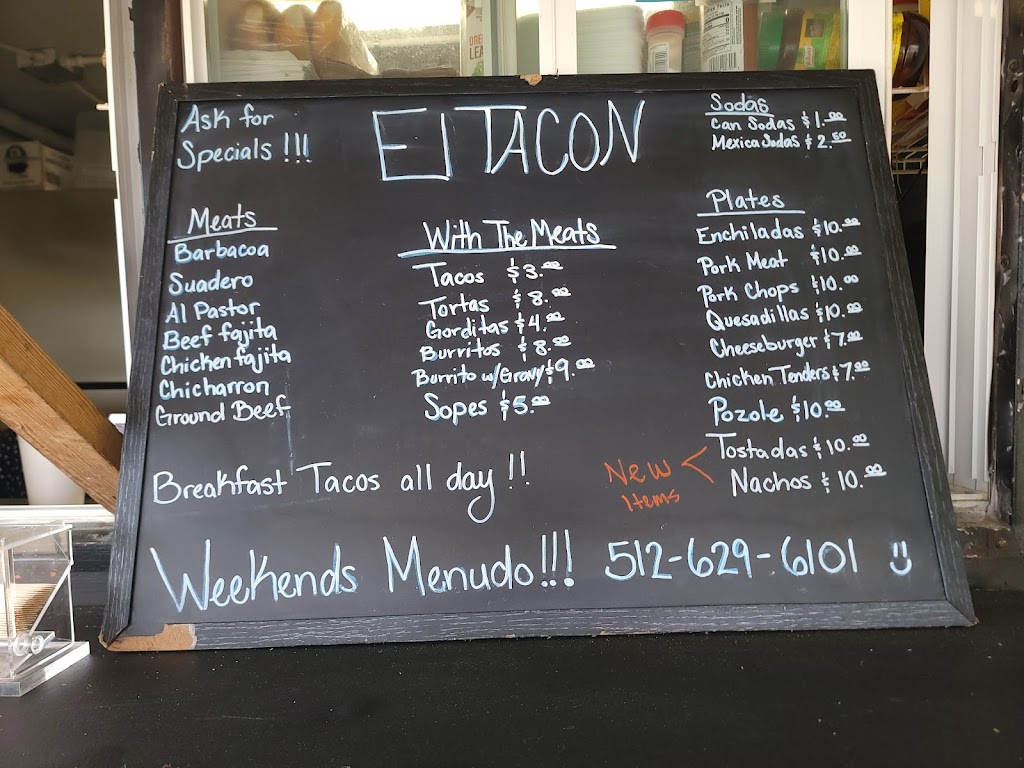 Ask for
Specials !!!
El TACON
Sodas
Can Sodas $1.00
Mexica Sodas $2.50
Meats
Barbacoa
Suadero
Al Pastor
Beef fajita
Chicken fajita
Chicharron
Ground Beef
With The Meats
Tacos $3.00
Tortas $8.00
Gorditas $4.00
Burritos $8.00
Burrito w/Gravy $9.00
Sopes $5.00
Plates
Enchiladas $10.00
Pork Meat $10.00
Pork Chops $10.00
Quesadillas $10.00
Cheeseburger $7.00
Chicken Tenders $7.00
Pozole $10.00
New Items
Tostadas $10.00
Nachos $10.00
Breakfast Tacos all day !!
Weekends Menudo!!! 512-629-6101